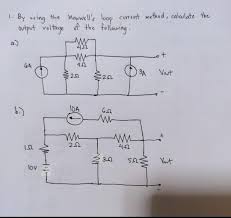 1. By using the Maxwell's loop current method, calculate the
output voltage of the following.
a)
4Ω
4Ω
6A
2Ω
2Ω
3A
+
Vout
-
b.)
10A
6Ω
2Ω
4Ω
+
1Ω
3Ω
5Ω
Vout
10V
-